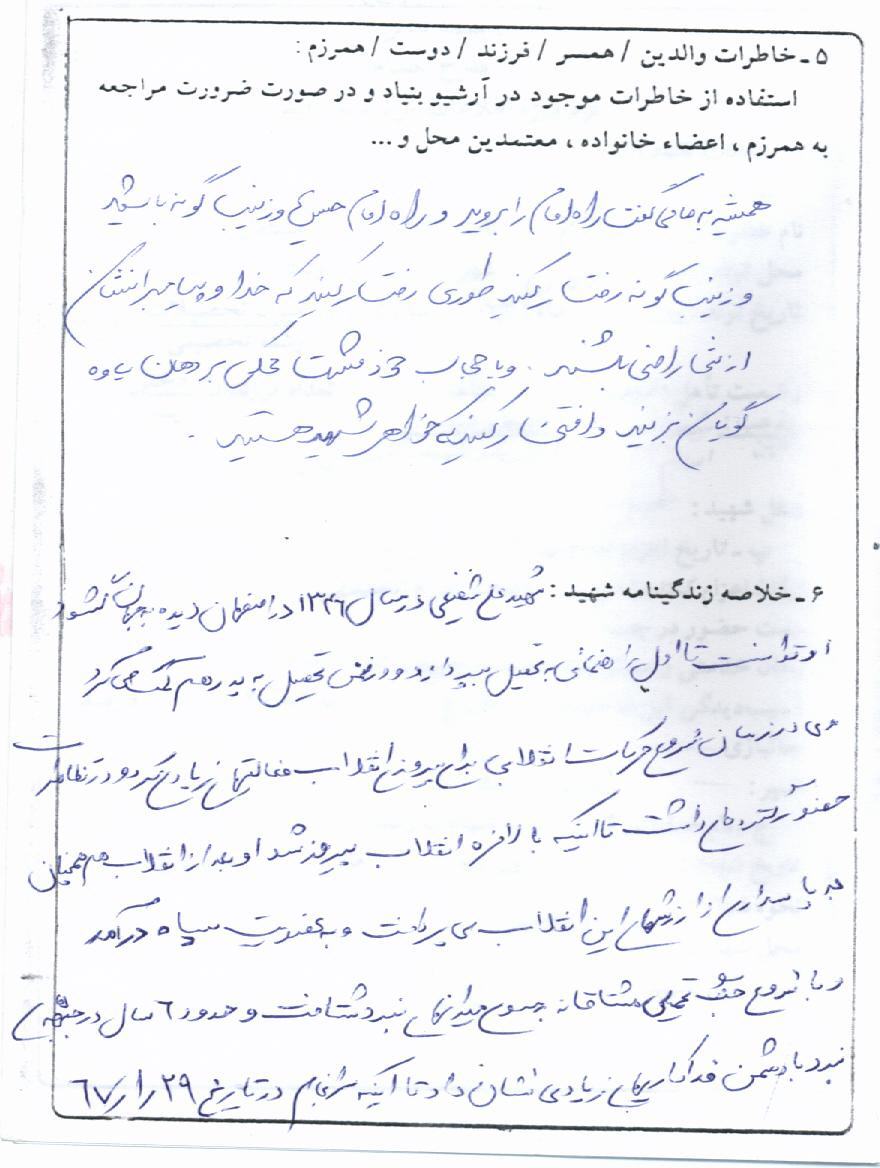 ۵ ـ خاطرات والدین / همسر / فرزند / دوست / همرزم :
استفاده از خاطرات موجود در آرشیو بنیاد و در صورت ضرورت مراجعه
به همرزم ، اعضاء خانواده ، معتمدین محل و ...
همیشه به ما می گفت راه امام را بروید و راه امام حسین و زینب گونه باشید
و زینب گونه رفتار کنید طوری رفتار کنید که خدا و پیامبرانشان
از شما راضی باشند . و با حجاب خود مشت محکمی بر دهان یاوه
گویان بزنید و افتخار کنید که خواهر شهید هستید .
۶ ـ خلاصه زندگینامه شهید : شهید علی شفیعی در سال ۱۳۴۶ در اصفهان دیده به جهان گشود
او توانست تا اول راهنمائی به تحصیل بپردازد و در ضمن تحصیل به پدر هم کمک می کرد
وی در زمان شروع حرکات انقلابی برای پیروزی انقلاب فعالیتهای زیادی کرد و در تظاهرات
حضور گسترده ای داشت تا اینکه بالاخره انقلاب پیروز شد او بعد از انقلاب هم همچنان
به پاسداری از ارزشهای این انقلاب می پرداخت و به عضویت سپاه درآمد
و با شروع جنگ تحمیلی مشتاقانه بسوی میدانهای نبرد شتافت و حدود ۶ سال در جبهه های
نبرد با دشمن فداکاریهای زیادی نشان داد تا اینکه سرانجام در تاریخ ۲۹ ر۱ ر۶۷